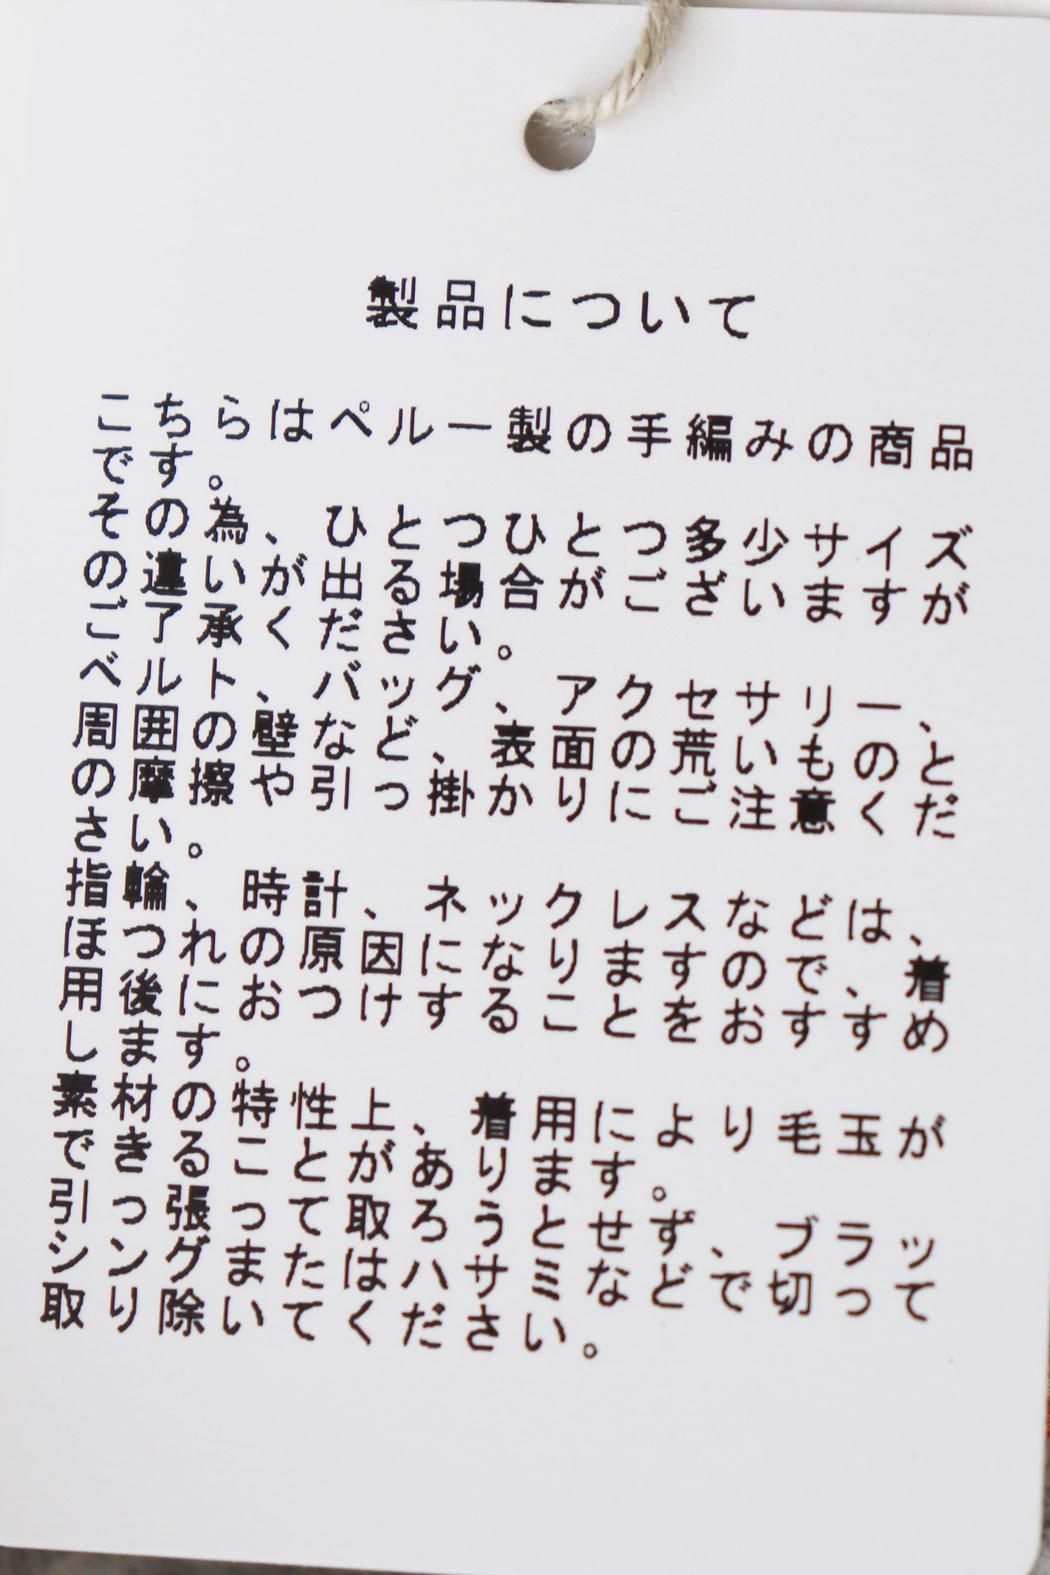 製品について
こちらはペルー製の手編みの商品
です。
その為、ひとつひとつ多少サイズ
の違いが出る場合がございますが
ご了承くださいい。
ベルト、バッグ、アクセサリー、
周囲の壁など、表面の荒いものと
の摩擦や引っ掛かりにご注意くだ
さい。
指輪、時計、ネックレスなどは、
ほつれの原因になりますので、着
用後におつけすることをおすすめ
します。
素材の特性上、着用により毛玉が
できることがあります。
引っ張って取ろうとせず、ブラッ
シングまたはハサミなどで切って
取り除いてください。